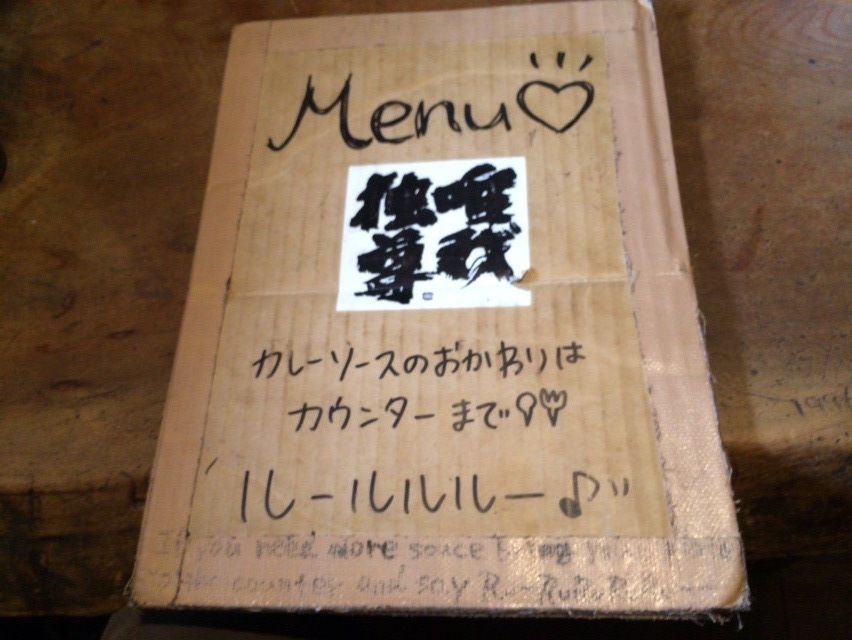 Menu♡
唯我
独尊
カレーソースのおかわりは
カウンターまで
"ルールルルルー♪"
If you need more souce bring your plate
to the counter and say Ru-RuRuRuRu